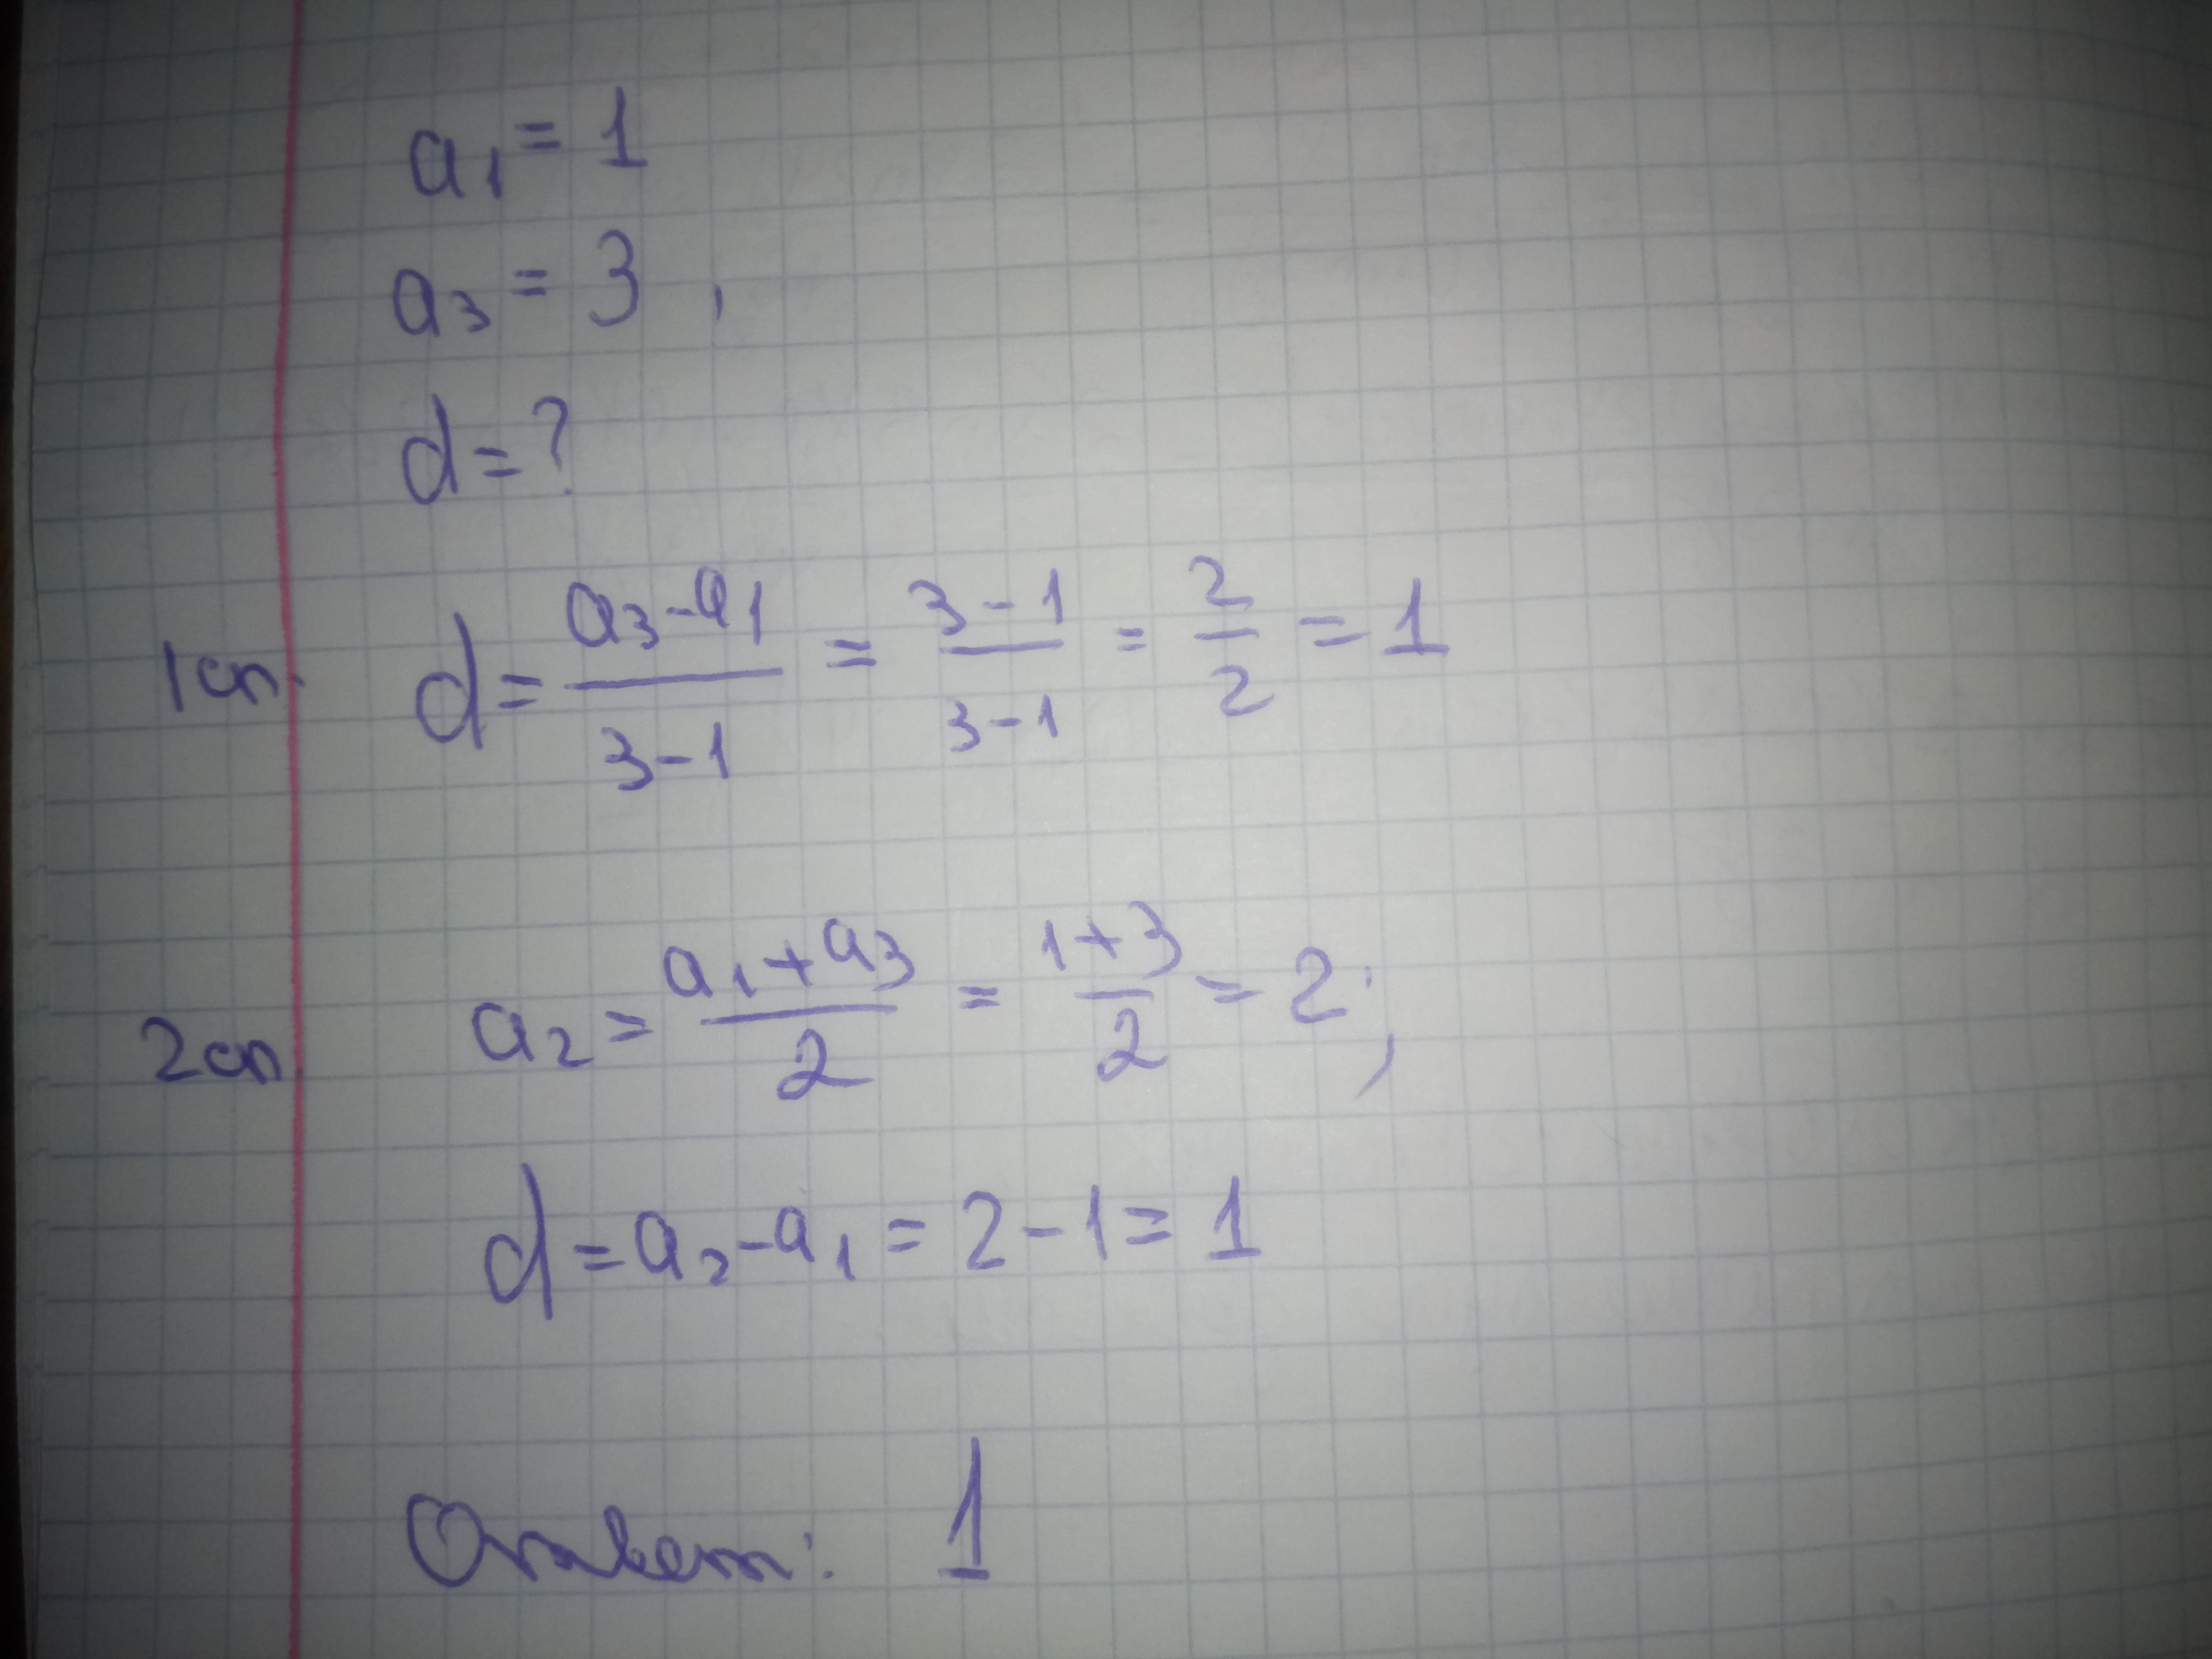 a₁ = 1
a₃ = 3 ,
d = ?
1 сп. d = (a₃ - a₁)/(3 - 1) = (3 - 1)/(3 - 1) = 2/2 = 1
2 сп a₂ = (a₁ + a₃)/2 = (1 + 3)/2 = 2 ;
d = a₂ - a₁ = 2 - 1 = 1
Ответ: 1